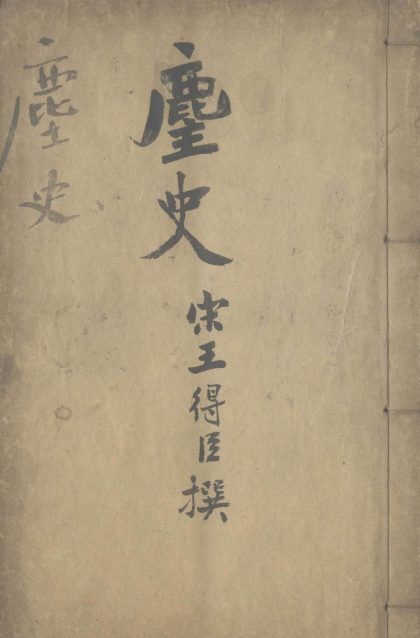 麈史
宋王得臣撰
麈史